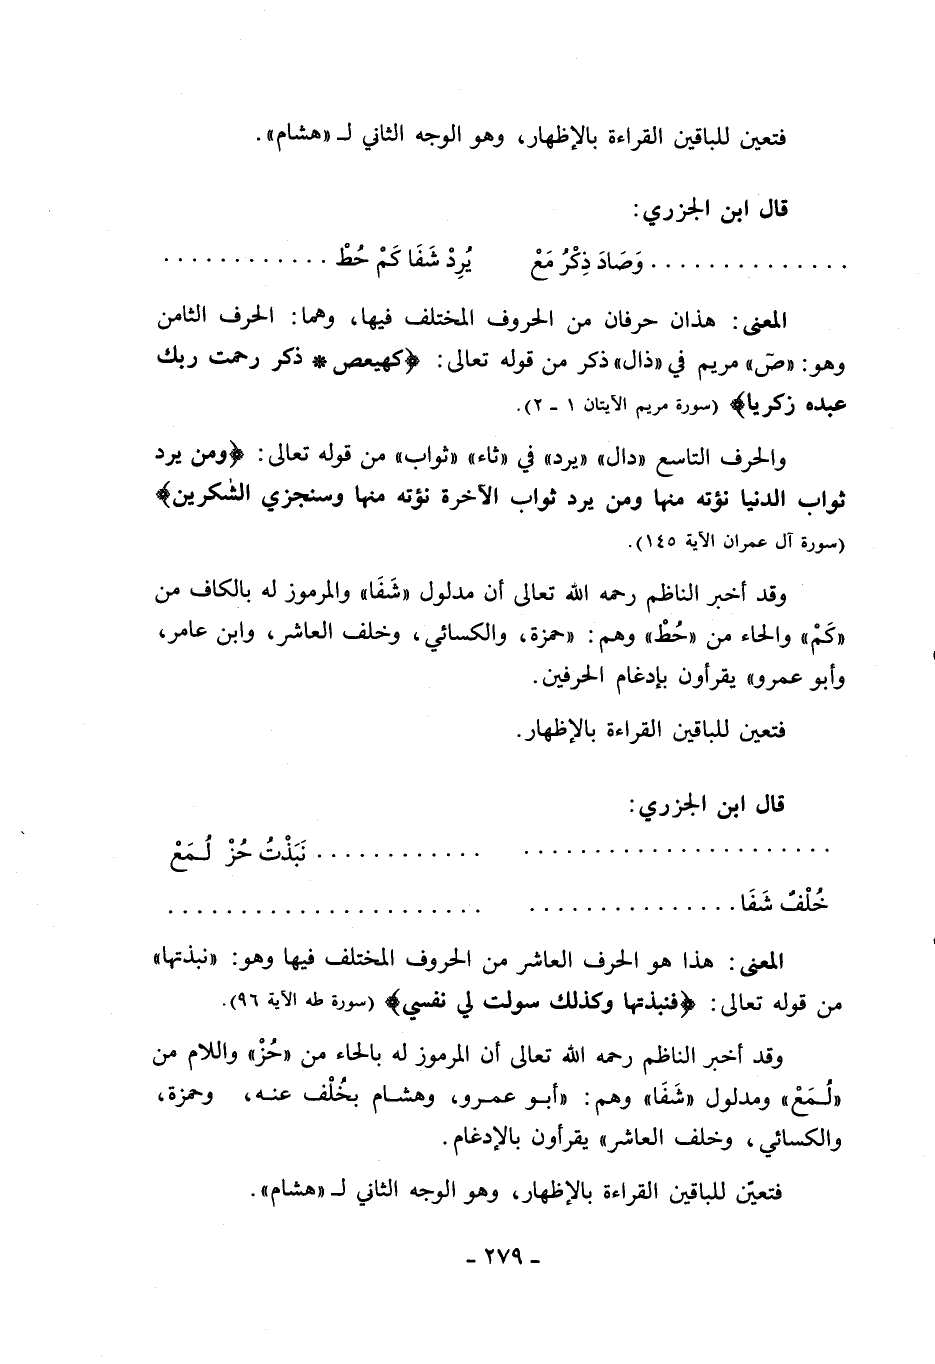 فتعين للباقين القراءة بالإظهار، وهو الوجه الثاني لـ «هشام».
قال ابن الجزري:
.............. وَصَادَ ذِكْرُ مَعْ يُرِدْ شَفَا كَمْ حُطْ ............
المعنى: هذان حرفان من الحروف المختلف فيها، وهما: الحرف الثامن
وهو: «صَ» مريم في «ذال» ذكر من قوله تعالى: ﴿كهيعص * ذكر رحمت ربك
عبده زكريا﴾ (سورة مريم الآيتان ١ - ٢).
والحرف التاسع «دال» «يرد» في «ثاء» «ثواب» من قوله تعالى: ﴿ومن يرد
ثواب الدنيا نؤته منها ومن يرد ثواب الآخرة نؤته منها وسنجزي الشٰكرين﴾
(سورة آل عمران الآية ١٤٥).
وقد أخبر الناظم رحمه الله تعالى أن مدلول «شَفَا» والمرموز له بالكاف من
«كَمْ» والحاء من «حُطْ» وهم: «حمزة، والكسائي، وخلف العاشر، وابن عامر،
وأبو عمرو» يقرأون بإدغام الحرفين.
فتعين للباقين القراءة بالإظهار.
قال ابن الجزري:
...................... ............ نَبَذْتُ حُزْ لُـمَعْ
خُلْفٌ شَفَا............... ......................
المعنى: هذا هو الحرف العاشر من الحروف المختلف فيها وهو: «نبذتها»
من قوله تعالى: ﴿فنبذتها وكذلك سولت لي نفسي﴾ (سورة طه الآية ٩٦).
وقد أخبر الناظم رحمه الله تعالى أن المرموز له بالحاء من «حُزْ» واللام من
«لُـمَعْ» ومدلول «شَفَا» وهم: «أبـو عمـرو، وهشـام بخُلْف عنـه، وحمزة،
والكسائي، وخلف العاشر» يقرأون بالإدغام.
فتعيّن للباقين القراءة بالإظهار، وهو الوجه الثاني لـ «هشام».
- ٢٧٩ -